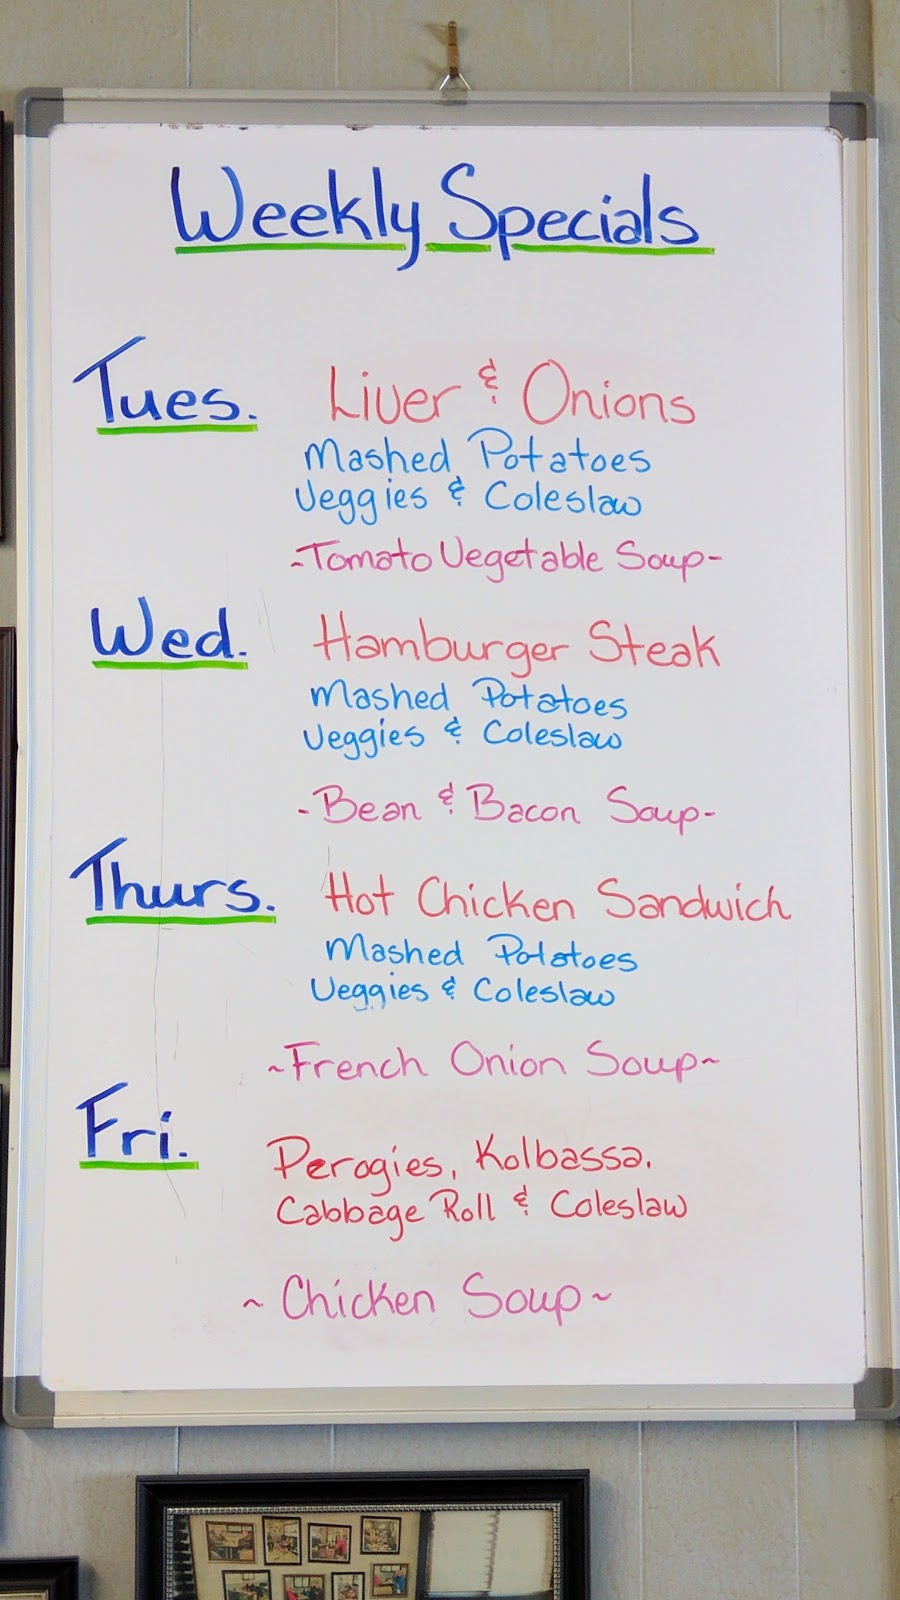 Weekly Specials
Tues.
Liver & Onions
Mashed Potatoes
Veggies & Coleslaw
~Tomato Vegetable Soup~
Wed.
Hamburger Steak
Mashed Potatoes
Veggies & Coleslaw
-Bean & Bacon Soup-
Thurs.
Hot Chicken Sandwich
Mashed Potatoes
Veggies & Coleslaw
~French Onion Soup~
Fri.
Perogies, Kolbassa.
Cabbage Roll & Coleslaw
~ Chicken Soup ~